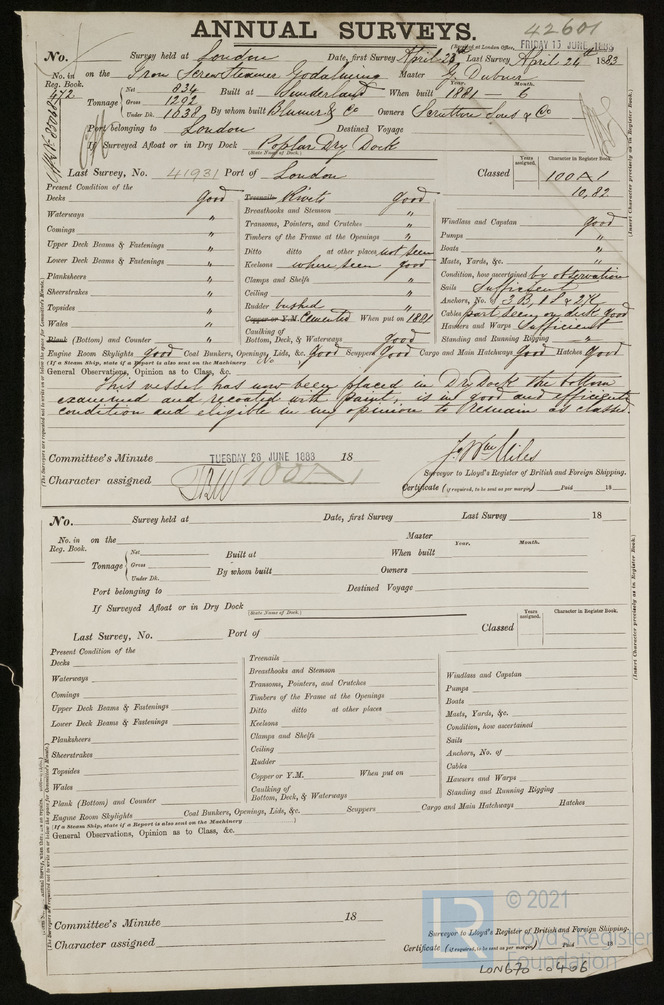 ANNUAL SURVEYS.
42601
(Received at London Office, FRIDAY 15 JUNE 1883
No. Survey held at London Date, first Survey April 23rd Last Survey April 24th 1883
No. in Reg. Book. 472 on the Iron Screw Steamer Godalming Master G.
Tonnage Net 834 Gross 1292 Under Dk. 1038 Built at Sunderland When built Year. 1881 Month. 6
By whom built Blumer & Co Owners Scrutton Sons & Co
Port belonging to London Destined Voyage
If Surveyed Afloat or in Dry Dock Poplar Dry Dock
(State Name of Dock.)
Last Survey, No. 41931 Port of London Classed Years assigned. Character in Register Book. 100A1
10,82
Present Condition of the
Decks good
Waterways "
Comings "
Upper Deck Beams & Fastenings "
Lower Deck Beams & Fastenings "
Planksheers "
Sheerstrakes "
Topsides "
Wales "
Plank (Bottom) and Counter "
Treenails Rivets good
Breasthooks and Stemson "
Transoms, Pointers, and Crutches "
Timbers of the Frame at the Openings "
Ditto ditto at other places not seen
Keelsons where seen good
Clamps and Shelfs "
Ceiling "
Rudder bushed "
Copper or Y.M. Cemented When put on 1881
Caulking of Bottom, Deck, & Waterways good
Windlass and Capstan good
Pumps "
Boats "
Masts, Yards, &c. "
Condition, how ascertained by observation
Sails Sufficient
Anchors, No. of 3 B, 1 S & 2 K
Cables part seen on deck good
Hawsers and Warps Sufficient
Standing and Running Rigging "
Engine Room Skylights good Coal Bunkers, Openings, Lids, &c. good Scuppers good Cargo and Main Hatchways good Hatches good
(If a Steam Ship, state if a Report is also sent on the Machinery No
General Observations, Opinion as to Class, &c.
This vessel has now been placed in Dry Dock the bottom
examined and recoated with paint, is in good and efficient
condition and eligible in my opinion to Remain as classed.
Committee's Minute TUESDAY 26 JUNE 1883 18
Miles
Surveyor to Lloyd's Register of British and Foreign Shipping.
Character assigned 100A1
Certificate (if required, to be sent as per margin) Paid 18
No. Survey held at Date, first Survey Last Survey 18
No. in Reg. Book. on the Master
Tonnage Net Gross Under Dk. Built at When built Year. Month.
By whom built Owners
Port belonging to Destined Voyage
If Surveyed Afloat or in Dry Dock
(State Name of Dock.)
Last Survey, No. Port of Classed Years assigned. Character in Register Book.
Present Condition of the
Decks
Waterways
Comings
Upper Deck Beams & Fastenings
Lower Deck Beams & Fastenings
Planksheers
Sheerstrakes
Topsides
Wales
Plank (Bottom) and Counter
Treenails
Breasthooks and Stemson
Transoms, Pointers, and Crutches
Timbers of the Frame at the Openings
Ditto ditto at other places
Keelsons
Clamps and Shelfs
Ceiling
Rudder
Copper or Y.M. When put on
Caulking of Bottom, Deck, & Waterways
Windlass and Capstan
Pumps
Boats
Masts, Yards, &c.
Condition, how ascertained
Sails
Anchors, No. of
Cables
Hawsers and Warps
Standing and Running Rigging
Engine Room Skylights Coal Bunkers, Openings, Lids, &c. Scuppers Cargo and Main Hatchways Hatches
(If a Steam Ship, state if a Report is also sent on the Machinery )
General Observations, Opinion as to Class, &c.
Committee's Minute 18
Surveyor to Lloyd's Register of British and Foreign Shipping.
Character assigned
Certificate (if required, to be sent as per margin) Paid 18
(Insert Character precisely as in Register Book.)
(Insert Character precisely as in Register Book.)
© 2021
LR
Lloyd's Register
Foundation
LON670-0406